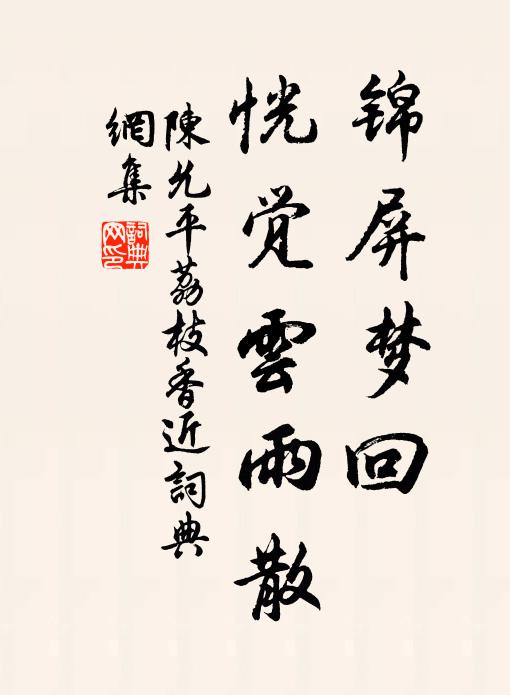 锦屏梦回
恍觉雲雨散
陳允平荔枝香近詞典
網集
詞典網印